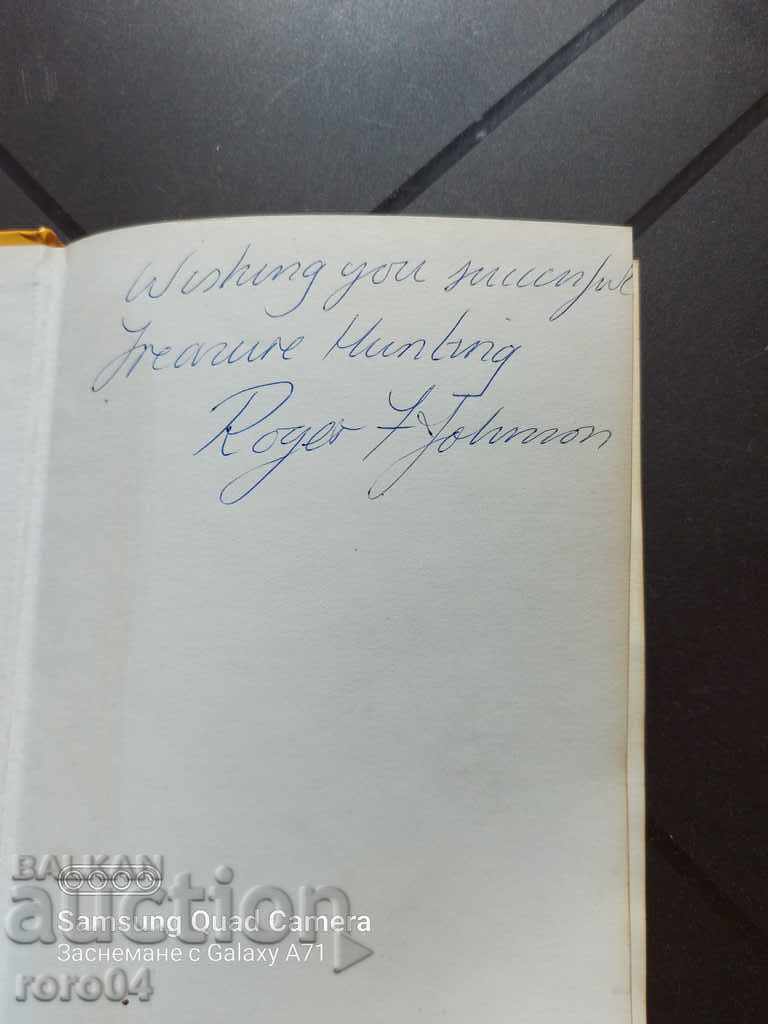 Wishing you successful
Treasure Hunting
Roger F Johnson
BALKAN
auction
Samsung Quad Camera
Заснемане с Galaxy A71
roro04